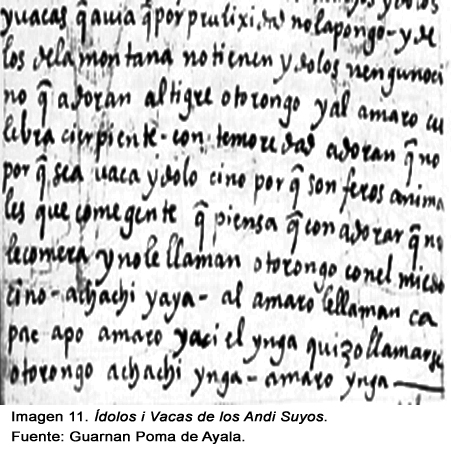 y uacas q̃ auia q̃ por prulixidad no la pongo - y de
los de la montaña no tienen ydolos nenguno ci
no q̃ adoran al tigre otorongo y al amaro cu
lebra cierpiente - con temoredad adoran q̃ no
por q̃ sea uaca ydolo cino por q̃ son feros anima
les que come gente q̃ piensa q̃ con adorar q̃ no
le comera y no le llaman otorongo con el miedo
cino - achachi yaya - al amaro le llaman ca
pac apo amaro y aci el ynga quizo llamarse
otorongo achachi ynga - amaro ynga
Imagen 11. Ídolos i Vacas de los Andi Suyos.
Fuente: Guarnan Poma de Ayala.